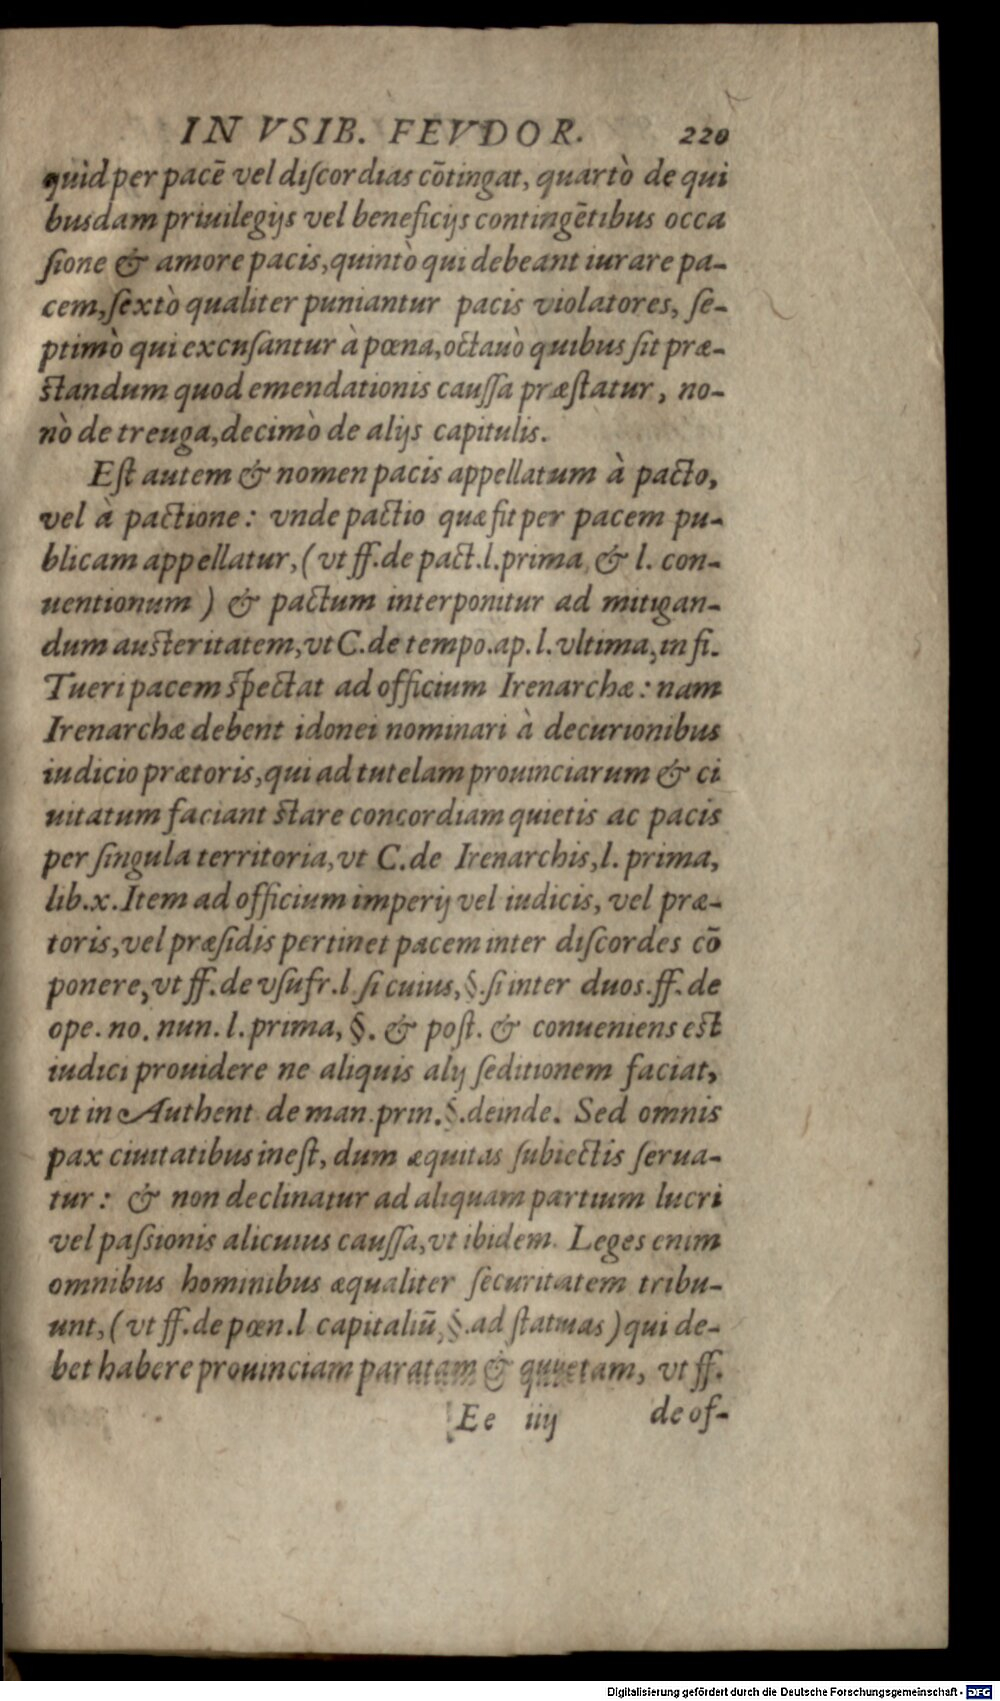 IN VSIB. FEVDOR. 220
quid per pacē vel discordias cōtingat, quartò de qui
busdam priuilegijs vel beneficijs contingētibus occa
sione & amore pacis, quintò qui debeant iurare pa-
cem, sextò qualiter puniantur pacis violatores, se-
ptimò qui excusantur à pœna, octauò quibus sit præ-
standum quod emendationis caussa præstatur, no-
nò de treuga, decimò de alijs capitulis.
Est autem & nomen pacis appellatum à pacto,
vel à pactione: vnde pactio quæ fit per pacem pu-
blicam appellatur, (vt ff. de pact. l. prima, & l. con-
uentionum) & pactum interponitur ad mitigan-
dum austeritatem, vt C. de tempo. ap. l. vltima, in fi.
Tueri pacem spectat ad officium Irenarchæ: nam
Irenarchæ debent idonei nominari à decurionibus
iudicio prætoris, qui ad tutelam prouinciarum & ci
uitatum faciant stare concordiam quietis ac pacis
per singula territoria, vt C. de Irenarchis, l. prima,
lib. x. Item ad officium imperij vel iudicis, vel præ-
toris, vel præsidis pertinet pacem inter discordes cō
ponere, vt ff. de vsufr. l. si cuius, §. si inter duos. ff. de
ope. no. nun. l. prima, §. & post. & conueniens est
iudici prouidere ne aliquis alij seditionem faciat,
vt in Authent de man. prin. §. deinde. Sed omnis
pax ciuitatibus inest, dum æquitas subiectis serua-
tur: & non declinatur ad aliquam partium lucri
vel passionis alicuius caussa, vt ibidem. Leges enim
omnibus hominibus æqualiter securitatem tribu-
unt, (vt ff. de pœn. l capitaliū, §. ad statuas) qui de-
bet habere prouinciam paratam & quietam, vt ff.
Ee iiij de of-
Digitalisierung gefördert durch die Deutsche Forschungsgemeinschaft - DFG